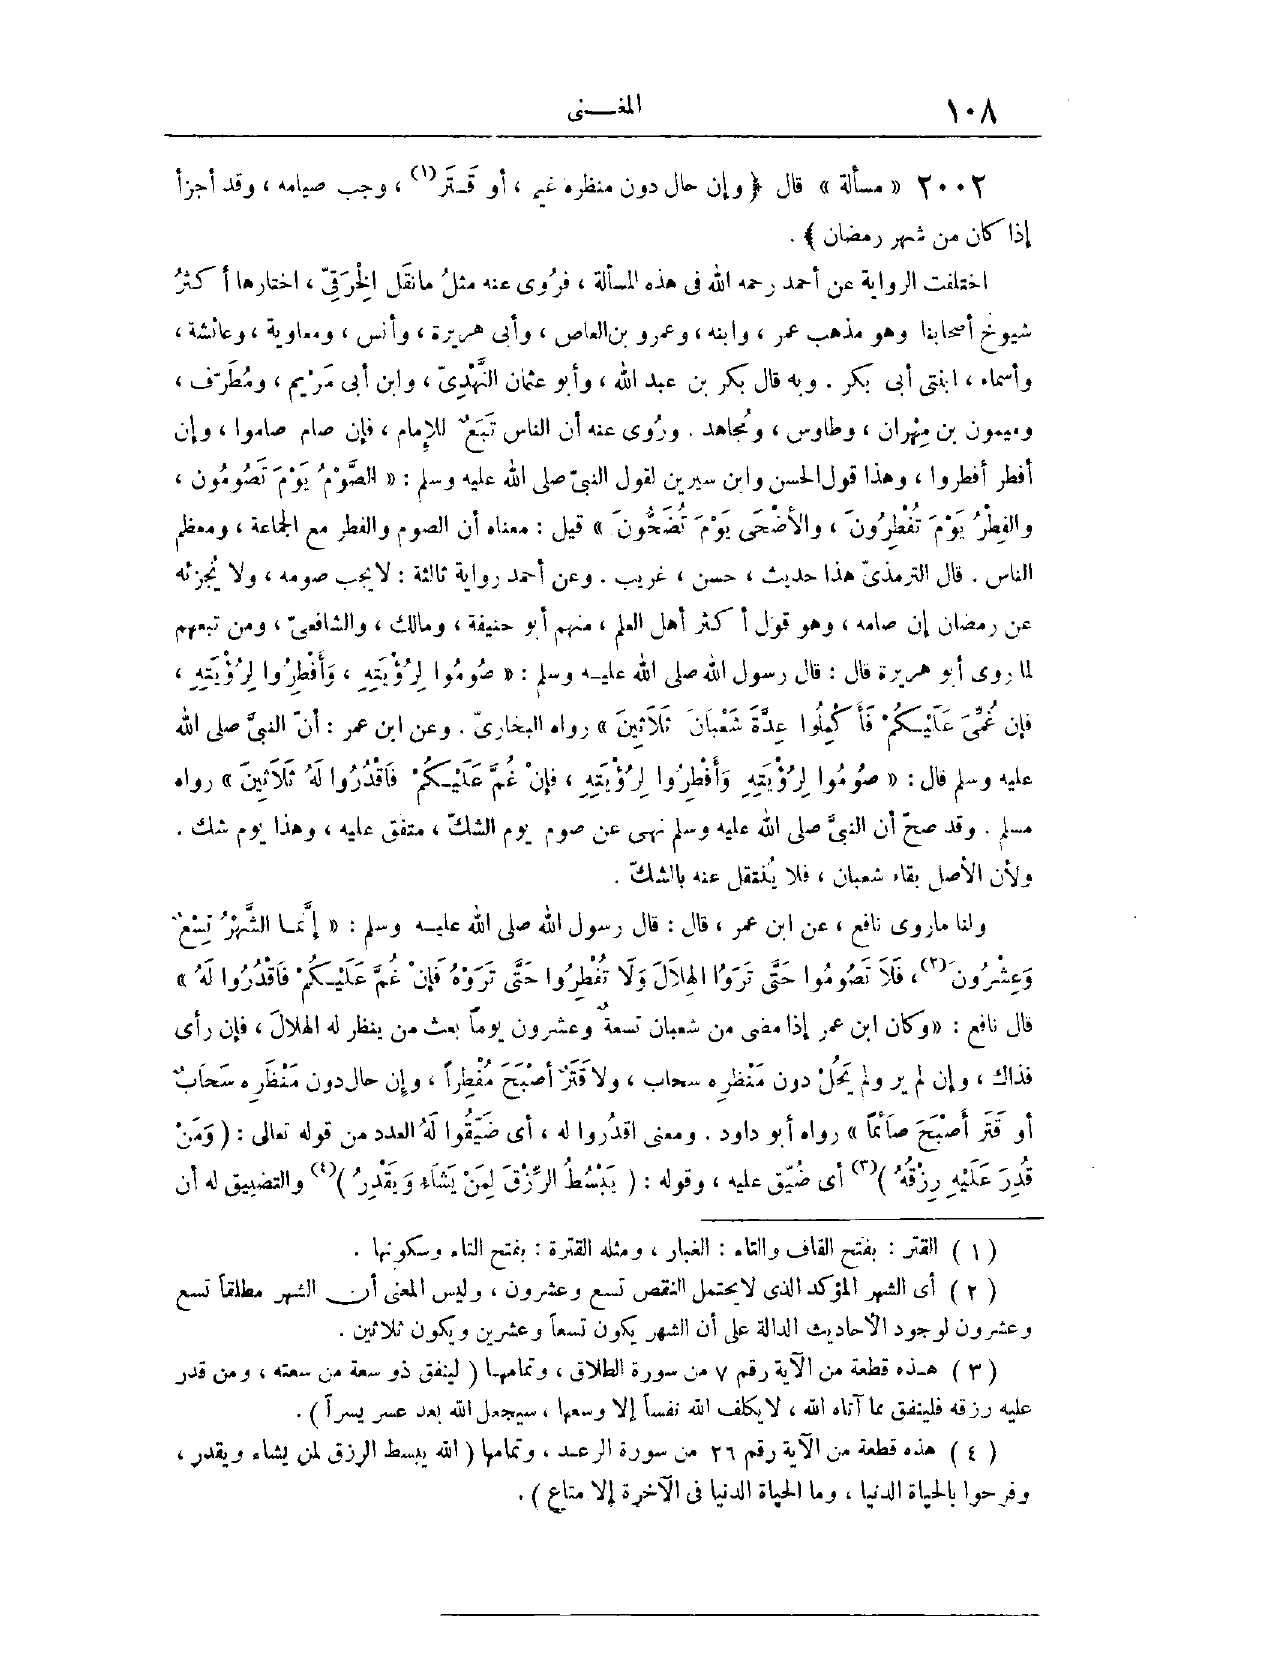 ١٠٨
المغـــنى
٢٠٠٢ « مسألة » قال ﴿ وإن حال دون منظره غيم ، أو قَـتَر(١) ، وجب صيامه ، وقد أجزأ
إذا كان من شهر رمضان ﴾ .
اختلفت الرواية عن أحمد رحمه الله فى هذه المسألة ، فرُوى عنه مثلُ مانقَل الخِرَقِىّ ، اختارها أكثرُ
شيوخ أصحابنا وهو مذهب عمر ، وابنه ، وعمرو بن العاص ، وأبى هريرة ، وأنس ، ومعاوية ، وعائشة ،
وأسماء ، ابنتى أبى بكر . وبه قال بكر بن عبد الله ، وأبو عثمان النَّهْدِىّ ، وابن أبى مَرْيم ، ومُطَرِّف ،
وميمون بن مِهْران ، وطاوس ، ومُجاهد . ورُوى عنه أن الناس تَبَعٌ للإِمام ، فإن صام صاموا ، وإن
أفطر أفطروا ، وهذا قول الحسن وابن سيرين لقول النبىّ صلى الله عليه وسلم : « الصَّوْمُ يَوْمَ تَصُومُون ،
والفِطْرُ يَوْمَ تُفْطِرُونَ ، والأَضْحَى يَوْمَ تُضَحُّونَ » قيل : معناه أن الصوم والفطر مع الجماعة ، ومعظم
الناس . قال الترمذىّ هذا حديث ، حسن ، غريب . وعن أحمد رواية ثالثة : لايجب صومه ، ولا يُجزئه
عن رمضان إن صامه ، وهو قول أكثر أهل العلم ، منهم أبو حنيفة ، ومالك ، والشافعىّ ، ومن تبعهم
لما روى أبو هريرة قال : قال رسول الله صلى الله عليـه وسلم : « صُومُوا لِرُؤْيَتِهِ ، وَأَفْطِرُوا لِرُؤْيَتِهِ ،
فإن غُمِّىَ عَلَيْـكُمْ فَأَكْمِلُوا عِدَّةَ شَعْبَانَ ثَلَاثِينَ » رواه البخارىّ . وعن ابن عمر : أنّ النبىَّ صلى الله
عليه وسلم قال : « صُومُوا لِرُؤْيَتِهِ وَأَفْطِرُوا لِرُؤْيَتِهِ ، فإنْ غُمَّ عَلَيْـكُمْ فَاقْدُرُوا لَهُ ثَلَاثِينَ » رواه
مسلم . وقد صحّ أن النبىَّ صلى الله عليه وسلم نهى عن صوم يوم الشكّ ، متفق عليه ، وهذا يوم شك .
ولأن الأصل بقاء شعبان ، فلا يُنتقل عنه بالشكّ .
ولنا ماروى نافع ، عن ابن عمر ، قال : قال رسول الله صلى الله عليـه وسلم : « إنَّمـا الشَّهْرُ تِسْعٌ
وَعِشْرُونَ(٢)، فَلَا تَصُومُوا حَتَّى تَرَوُا الهِلَالَ وَلَا تُفْطِرُوا حَتَّى تَرَوْهُ فَإنْ غُمَّ عَلَيْـكُمْ فَاقْدُرُوا لَهُ »
قال نافع : «وكان ابن عمر إذا مضى من شعبان تسعةٌ وعشرون يوماً بعث من ينظر له الهلالَ ، فإن رأى
فذاك ، وإن لم ير ولم يَحُلْ دون مَنْظره سحاب ، ولا قَتَرٌ أَصْبَحَ مُفْطِراً ، وإن حال دون مَنْظَرِه سَحَابٌ
أو قَتَر أَصْبَحَ صَائماً » رواه أبو داود . ومعنى اقدُروا له ، أى ضَيِّقُوا لَهُ العدد من قوله تعالى : ( وَمَنْ
قُدِرَ عَلَيْهِ رِزْقُهُ )(٣) أى ضُيّق عليه ، وقوله : ( يَبْسُطُ الرِّزْقَ لِمَنْ يَشَاءُ وَيَقْدِرُ )(٤) والتضييق له أن
( ١ ) القتر : بفتح القاف والتاء : الغبار ، ومثله القترة : بفتح التاء وسكونها .
( ٢ ) أى الشهر المؤكد الذى لايحتمل النقص تسع وعشرون ، وليس المعنى أن الشهر مطلقاً تسع
وعشرون لوجود الأحاديث الدالة على أن الشهر يكون تسعاً وعشرين ويكون ثلاثين .
( ٣ ) هـذه قطعة من الآية رقم ٧ من سورة الطلاق ، وتمامهـا ( لينفق ذو سعة من سعته ، ومن قدر
عليه رزقه فلينفق مما آتاه الله ، لا يكلف الله نفساً إلا وسعها ، سيجعل الله بعد عسر يسراً ) .
( ٤ ) هذه قطعة من الآية رقم ٢٦ من سورة الرعـد ، وتمامها ( الله يبسط الرزق لمن يشاء ويقدر ،
وفرحوا بالحياة الدنيا ، وما الحياة الدنيا فى الآخرة إلا متاع ) .